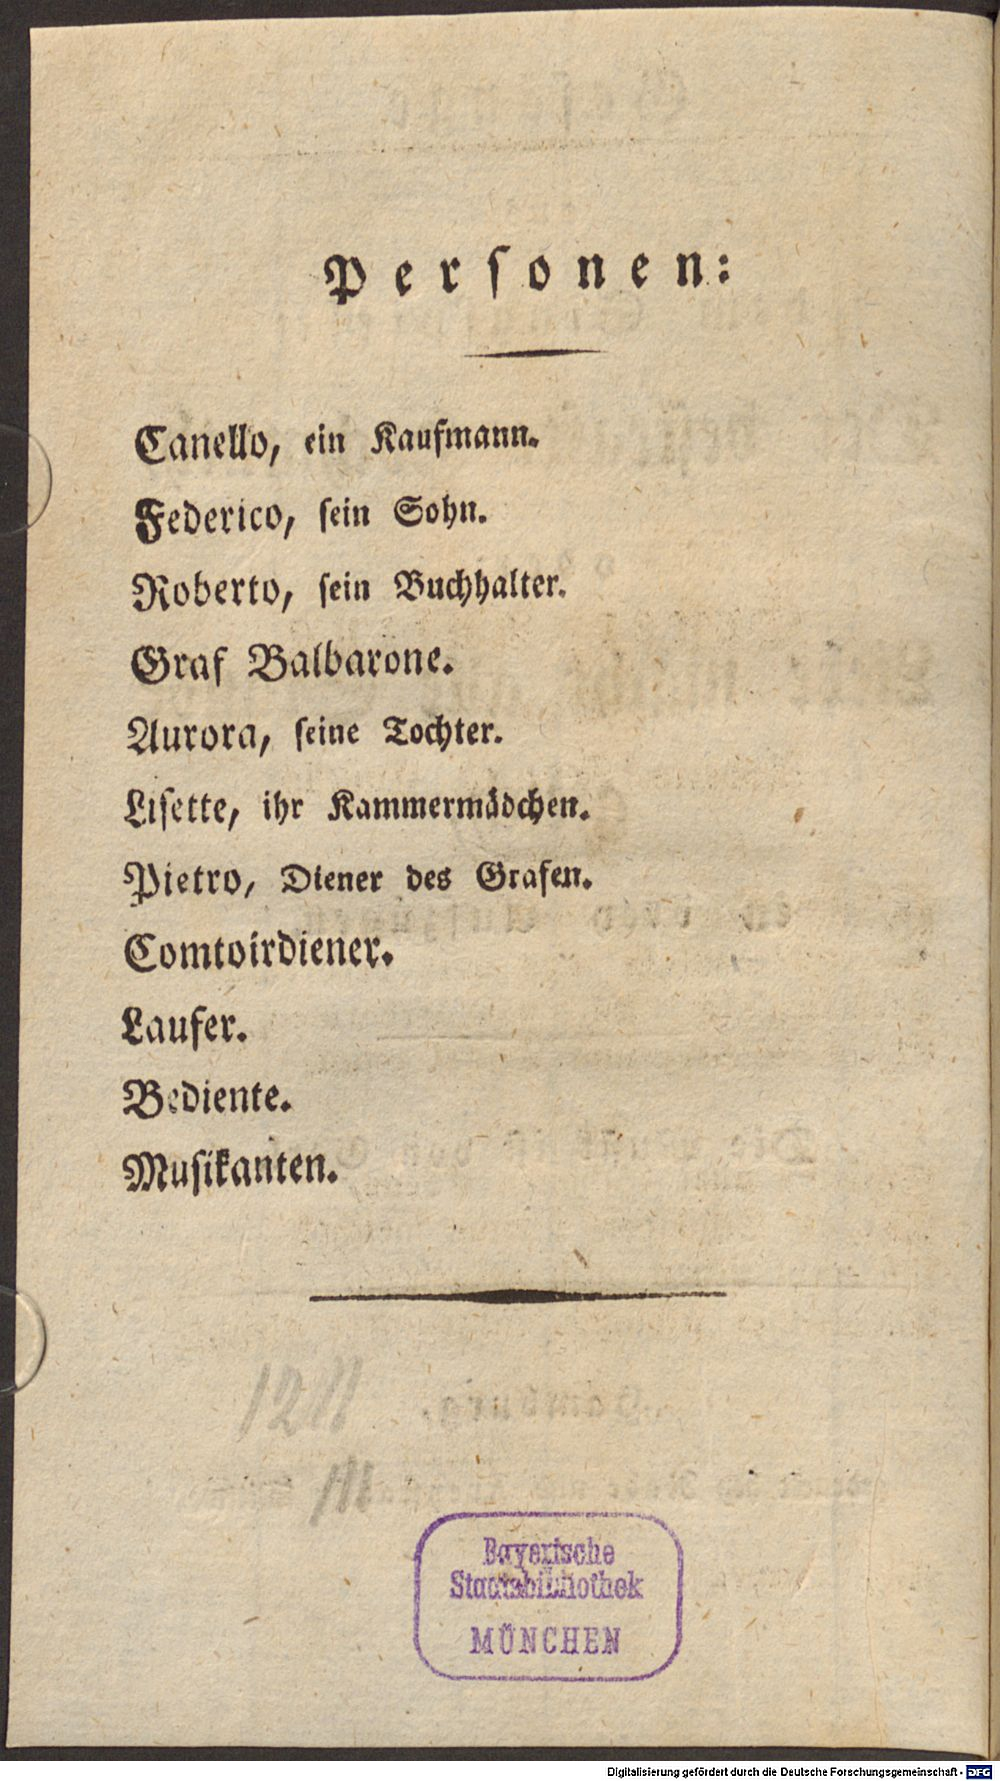 Personen:
Canello, ein Kaufmann.
Federico, sein Sohn.
Roberto, sein Buchhalter.
Graf Balbarone.
Aurora, seine Tochter.
Lisette, ihr Kammermädchen.
Pietro, Diener des Grafen.
Comtoirdiener.
Laufer.
Bediente.
Musikanten.
Bayerische
Staatsbibliothek
MÜNCHEN
Digitalisierung gefördert durch die Deutsche Forschungsgemeinschaft - DFG